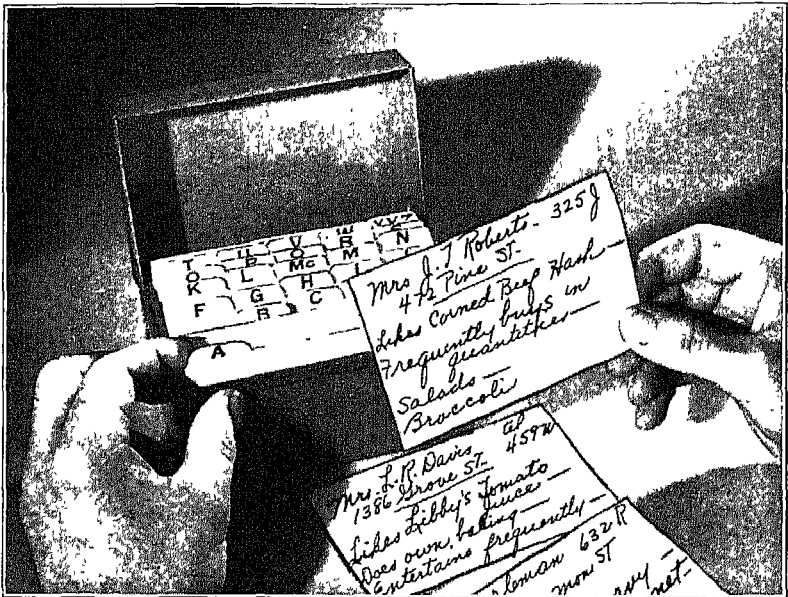 T U V W XYZ
O P Q R
K L Mc M N
F G H I
B C
A
Mrs J. T Roberts - 325J
472 Pine ST-
Likes Corned Beef Hash-
Frequently buys in
quantities-
Salads-
Broccoli
Mrs. L. R. Davis
459W
1386 Grove ST-
Likes Libby's Tomato
juices-
Does own baking-
Entertains frequently-
632R
mon ST